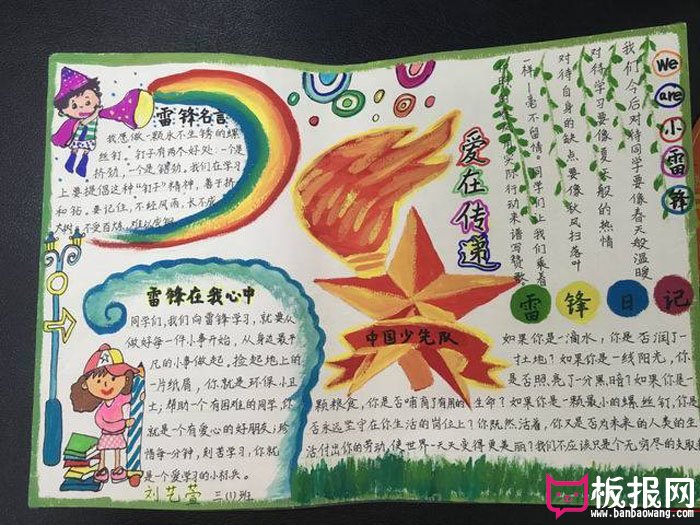 雷锋名言
我愿做一颗永不生锈的螺
丝钉。钉子有两个好处:一个是
挤劲,一个是钻劲,我们在学习
上要提倡这种“钉子”精神,善于挤
和钻。要记住,不经风雨,长不成
大树,不受百炼,难以成钢
爱在传递
中国少先队
We are 小雷锋
我们今后对待同学要像春天般温暖
对待学习要像夏天般的热情
对待自身的缺点要像秋风扫落叶
一样一毫不留情。同学们让我们乘着
实际行动来谱写赞歌。
雷锋在我心中
同学们,我们向雷锋学习,就要从
做好每一件小事开始,从身边最平
凡的小事做起,捡起地上的
一片纸屑,你就是环保小卫
士;帮助一个有困难的同学,你
就是一个有爱心的好朋友;珍
惜每一分钟,刻苦学习,你就
是一个爱学习的小标兵。
刘艺萱 三(1)班
雷锋日记
如果你是一滴水,你是否润了一
寸土地?如果你是一线阳光,你
是否照亮了一分黑暗?如果你是一
颗粮食,你是否哺育了有用的生命?如果你是一颗最小的螺丝钉,你是
否永远坚守在你生活的岗位上?你既然活着,你又是否为未来的人类的生
活付出你的劳动,使世界一天天变得更美丽?我们不应该只是个无穷尽的支取
板报网
www.banbaowang.com